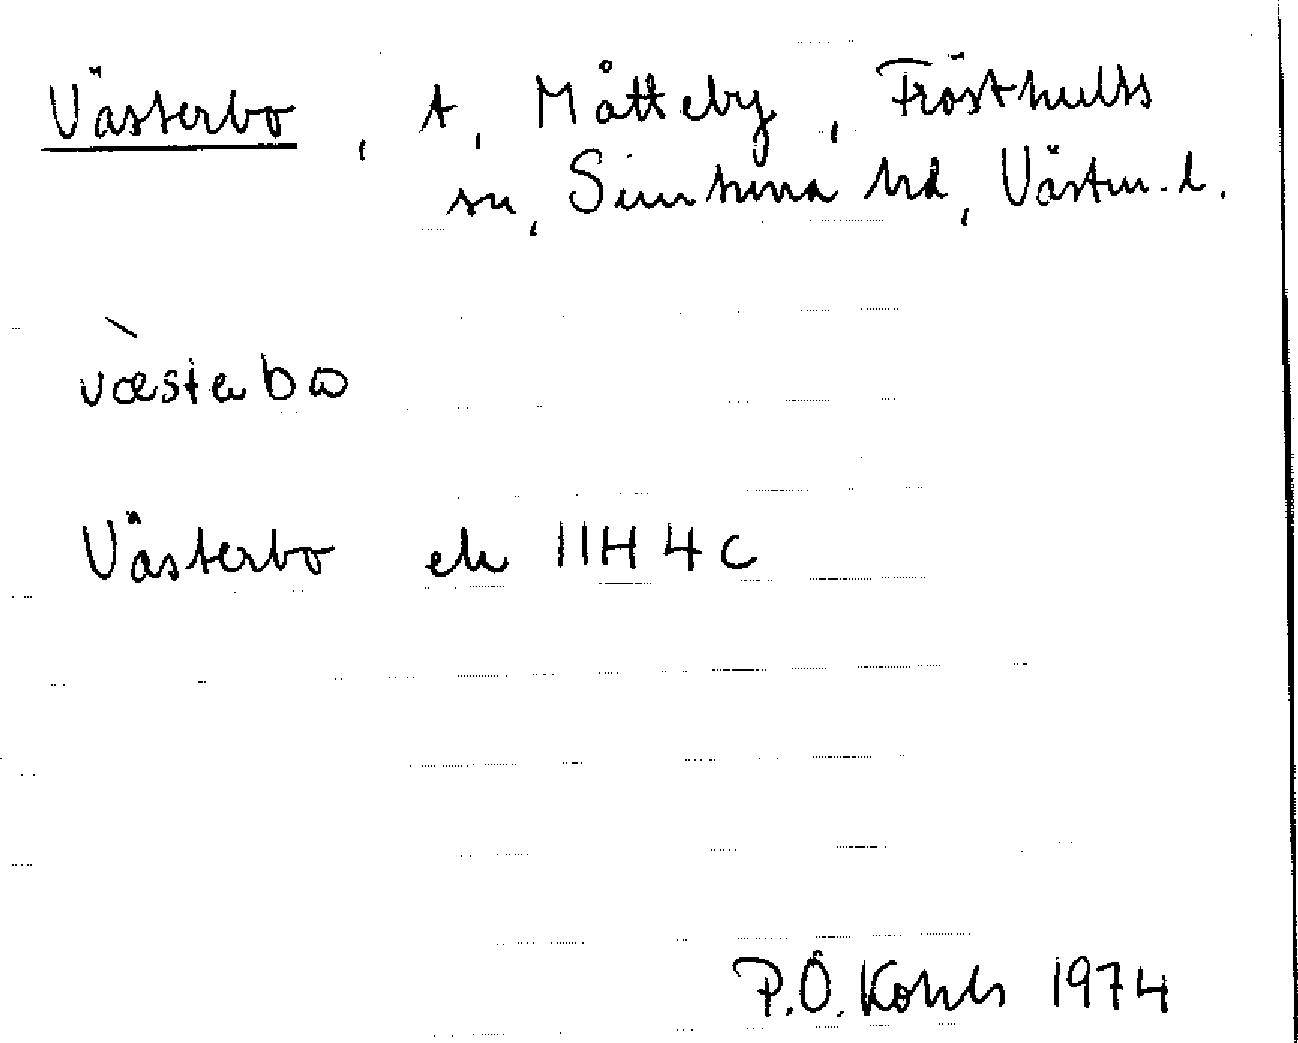 Västerbo, t, Måtteby, Frösthults
sn, Simtuna hd, Västm. l.
væsterbω
Västerbo ek 11H 4c
P.O. Kohls 1974